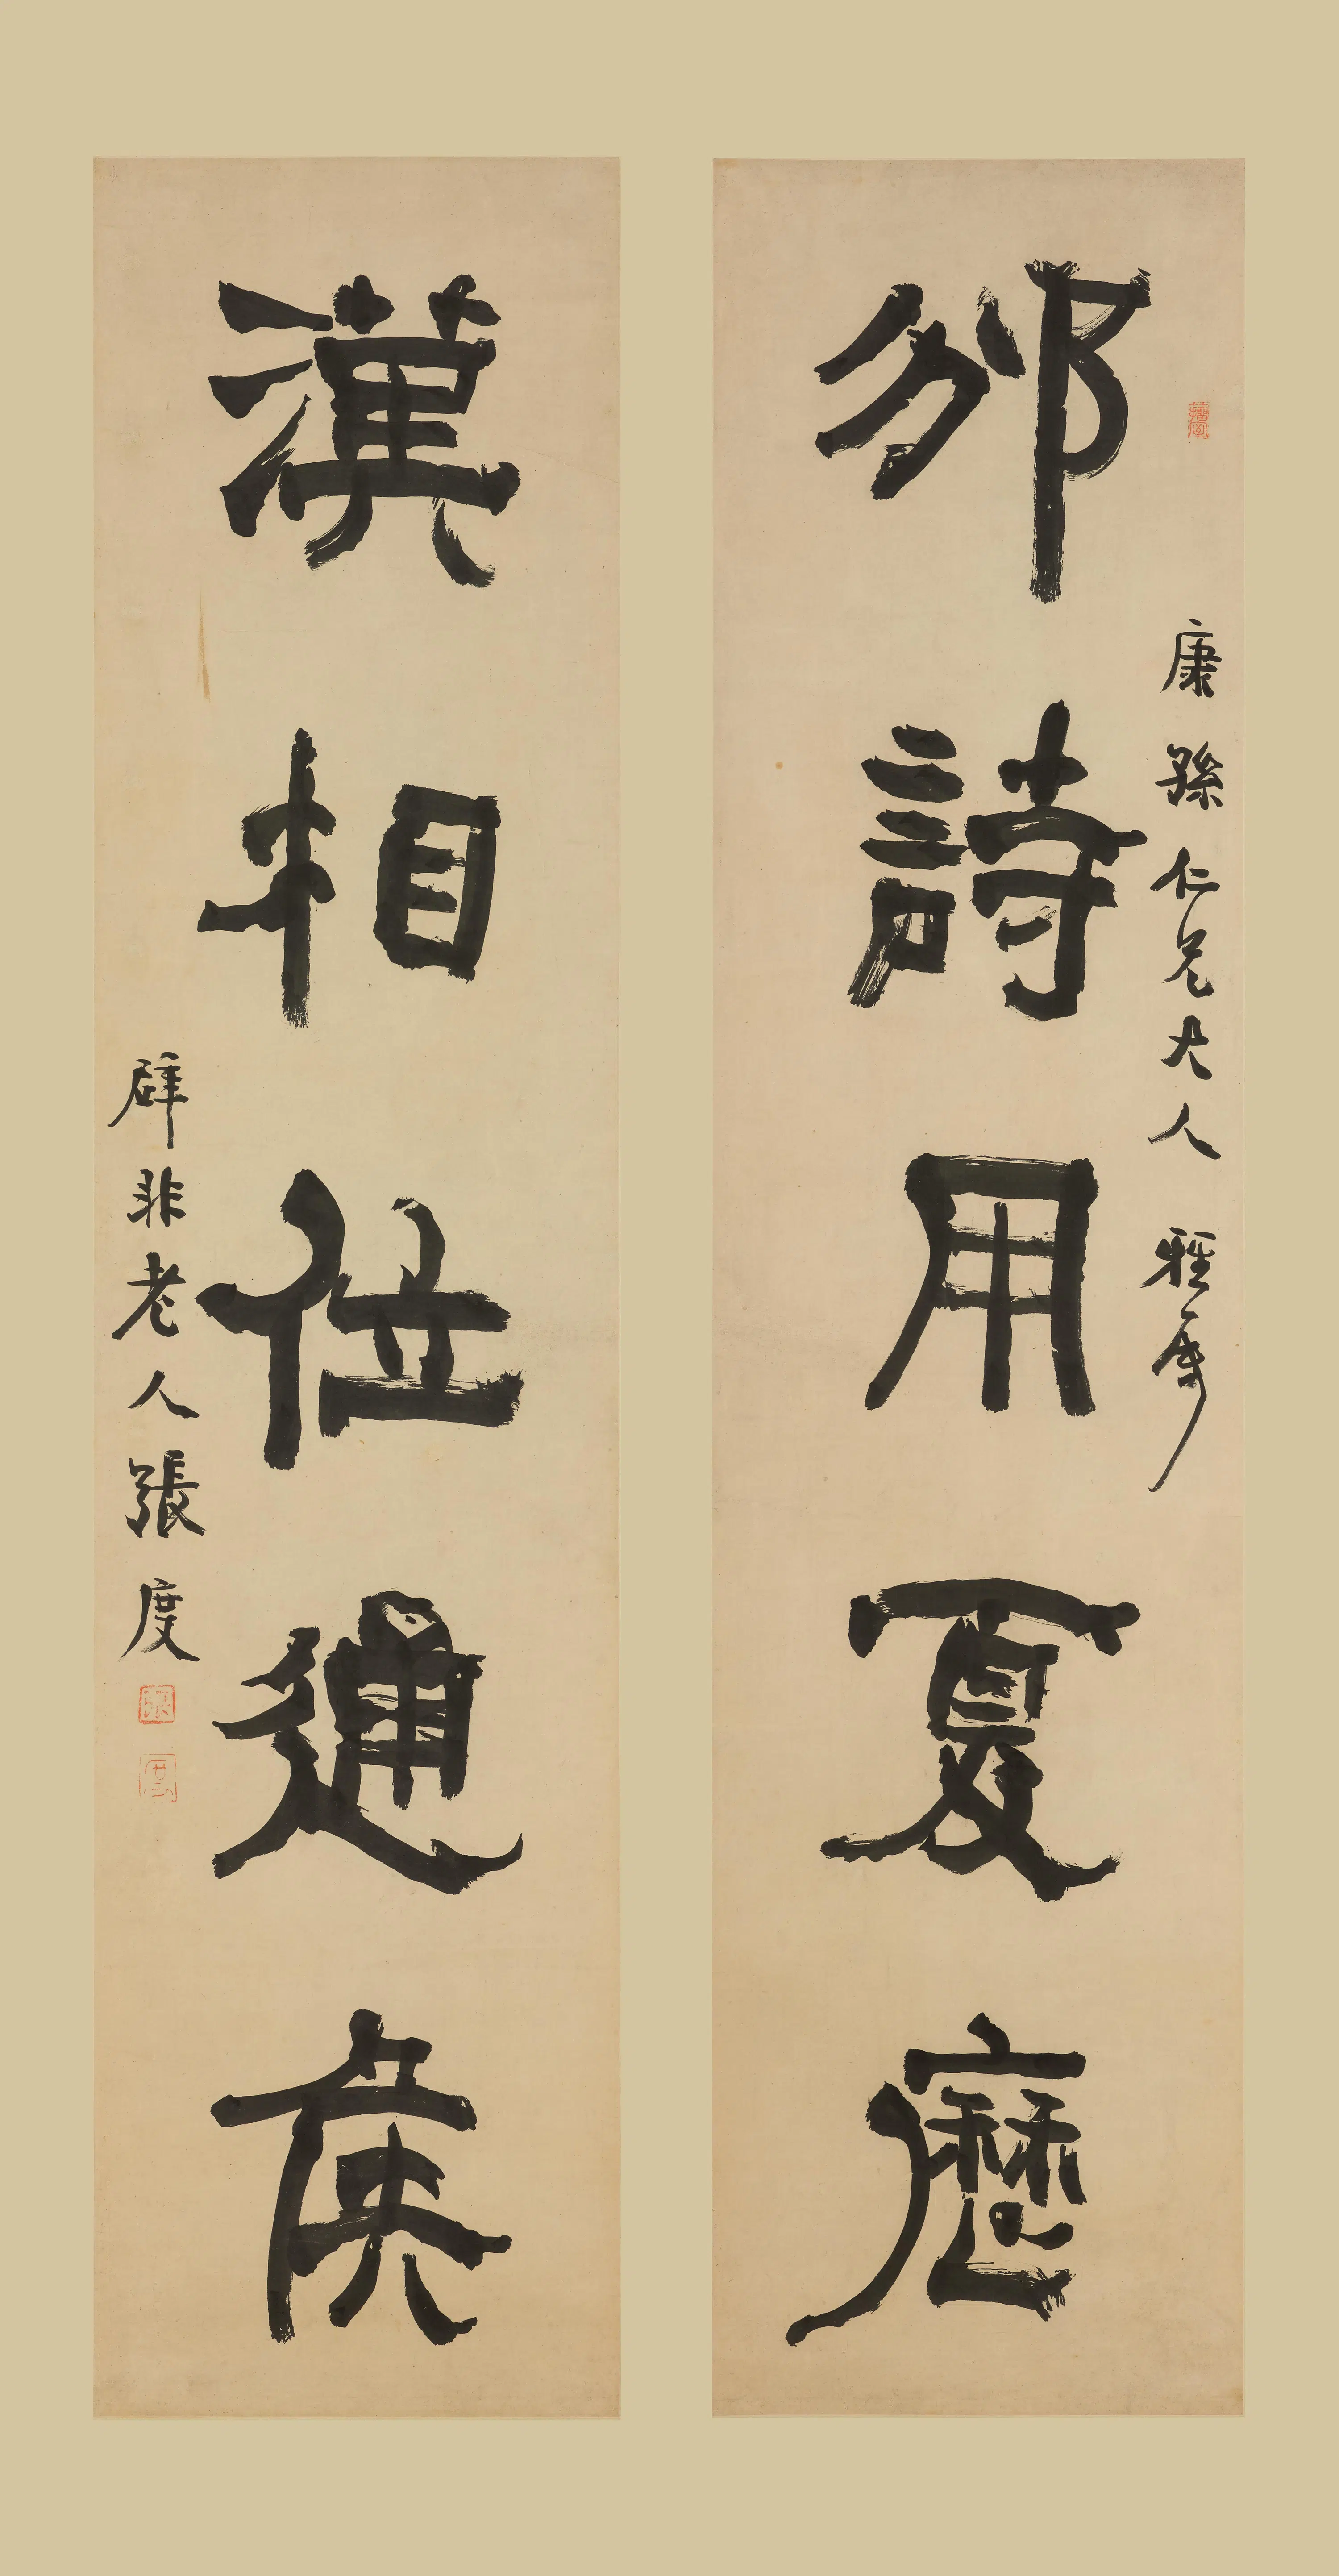 康孫仁兄大人雅屬
邠詩用夏歷
漢相位通侯
辟非老人張度